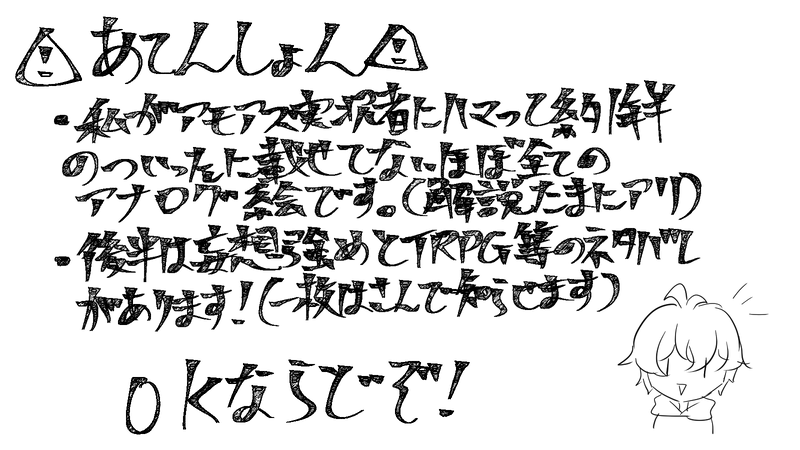 あてんしょん
・私がアモアス実況者にハマって約1年半
のついったに載せてないほぼ全ての
アナログ絵です。(解説たまにアリ)
・後半は妄想強めとTRPG等のネタバレ
があります!(一枚はさんで知らせます)
OKならどぞ!